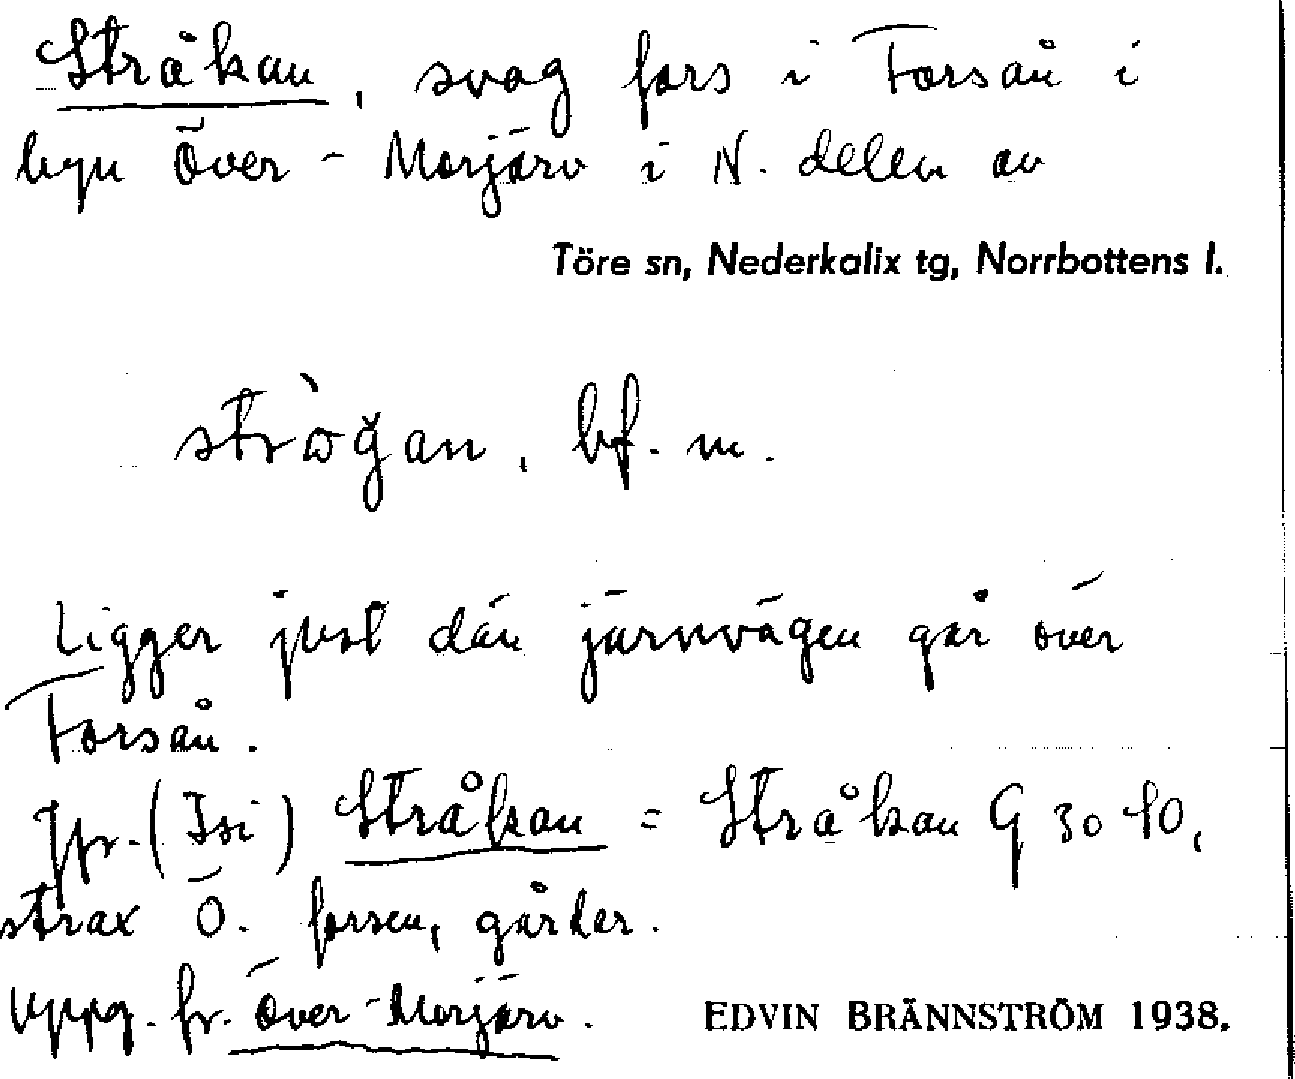 Stråkan, svag fors i Forsån i
byn Över-Morjärv i N. delen av
Töre sn, Nederkalix tg, Norrbottens l.
bf. m.
Ligger just där järnvägen går över
Forsån.
Jfr. (Isi) Stråkan = Stråkan G 30 40,
strax Ö. forsen, gårdar.
Uppg. fr. Över-Morjärv.
EDVIN BRÄNNSTRÖM 1938.